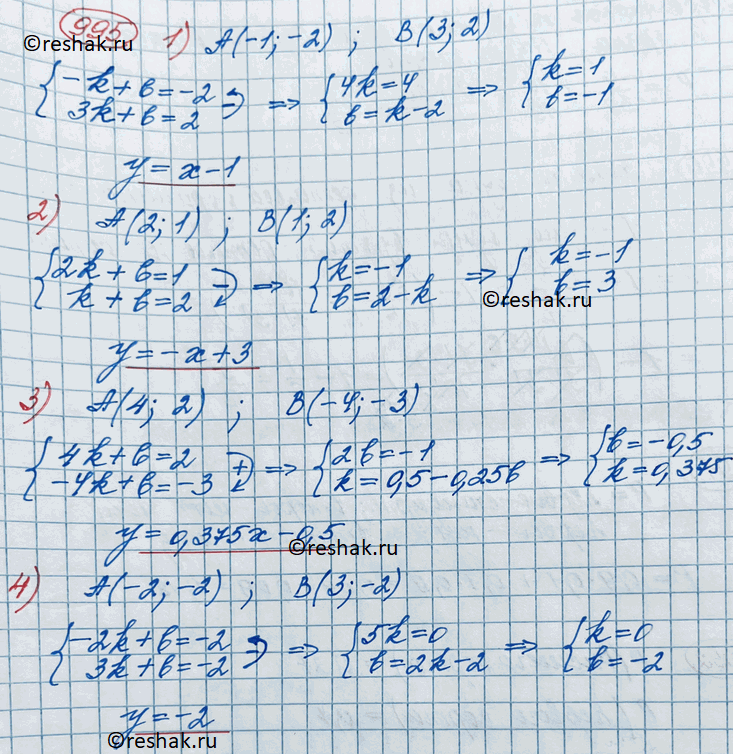 995 1) A(-1; -2) ; B(3; 2)
©reshak.ru
{-k+b=-2 3k+b=2 => {4k=4 b=k-2 => {k=1 b=-1
y=x-1
2) A(2; 1) ; B(1; 2)
{2k+b=1 k+b=2 => {k=-1 b=2-k => {k=-1 b=3
©reshak.ru
y=-x+3
3) A(4; 2) ; B(-4; -3)
{4k+b=2 -4k+b=-3 => {2b=-1 k=0,5-0,25b => {b=-0,5 k=0,375
y=0,375x-0,5
©reshak.ru
4) A(-2; -2) ; B(3; -2)
{-2k+b=-2 3k+b=-2 => {5k=0 b=2k-2 => {k=0 b=-2
y=-2
©reshak.ru